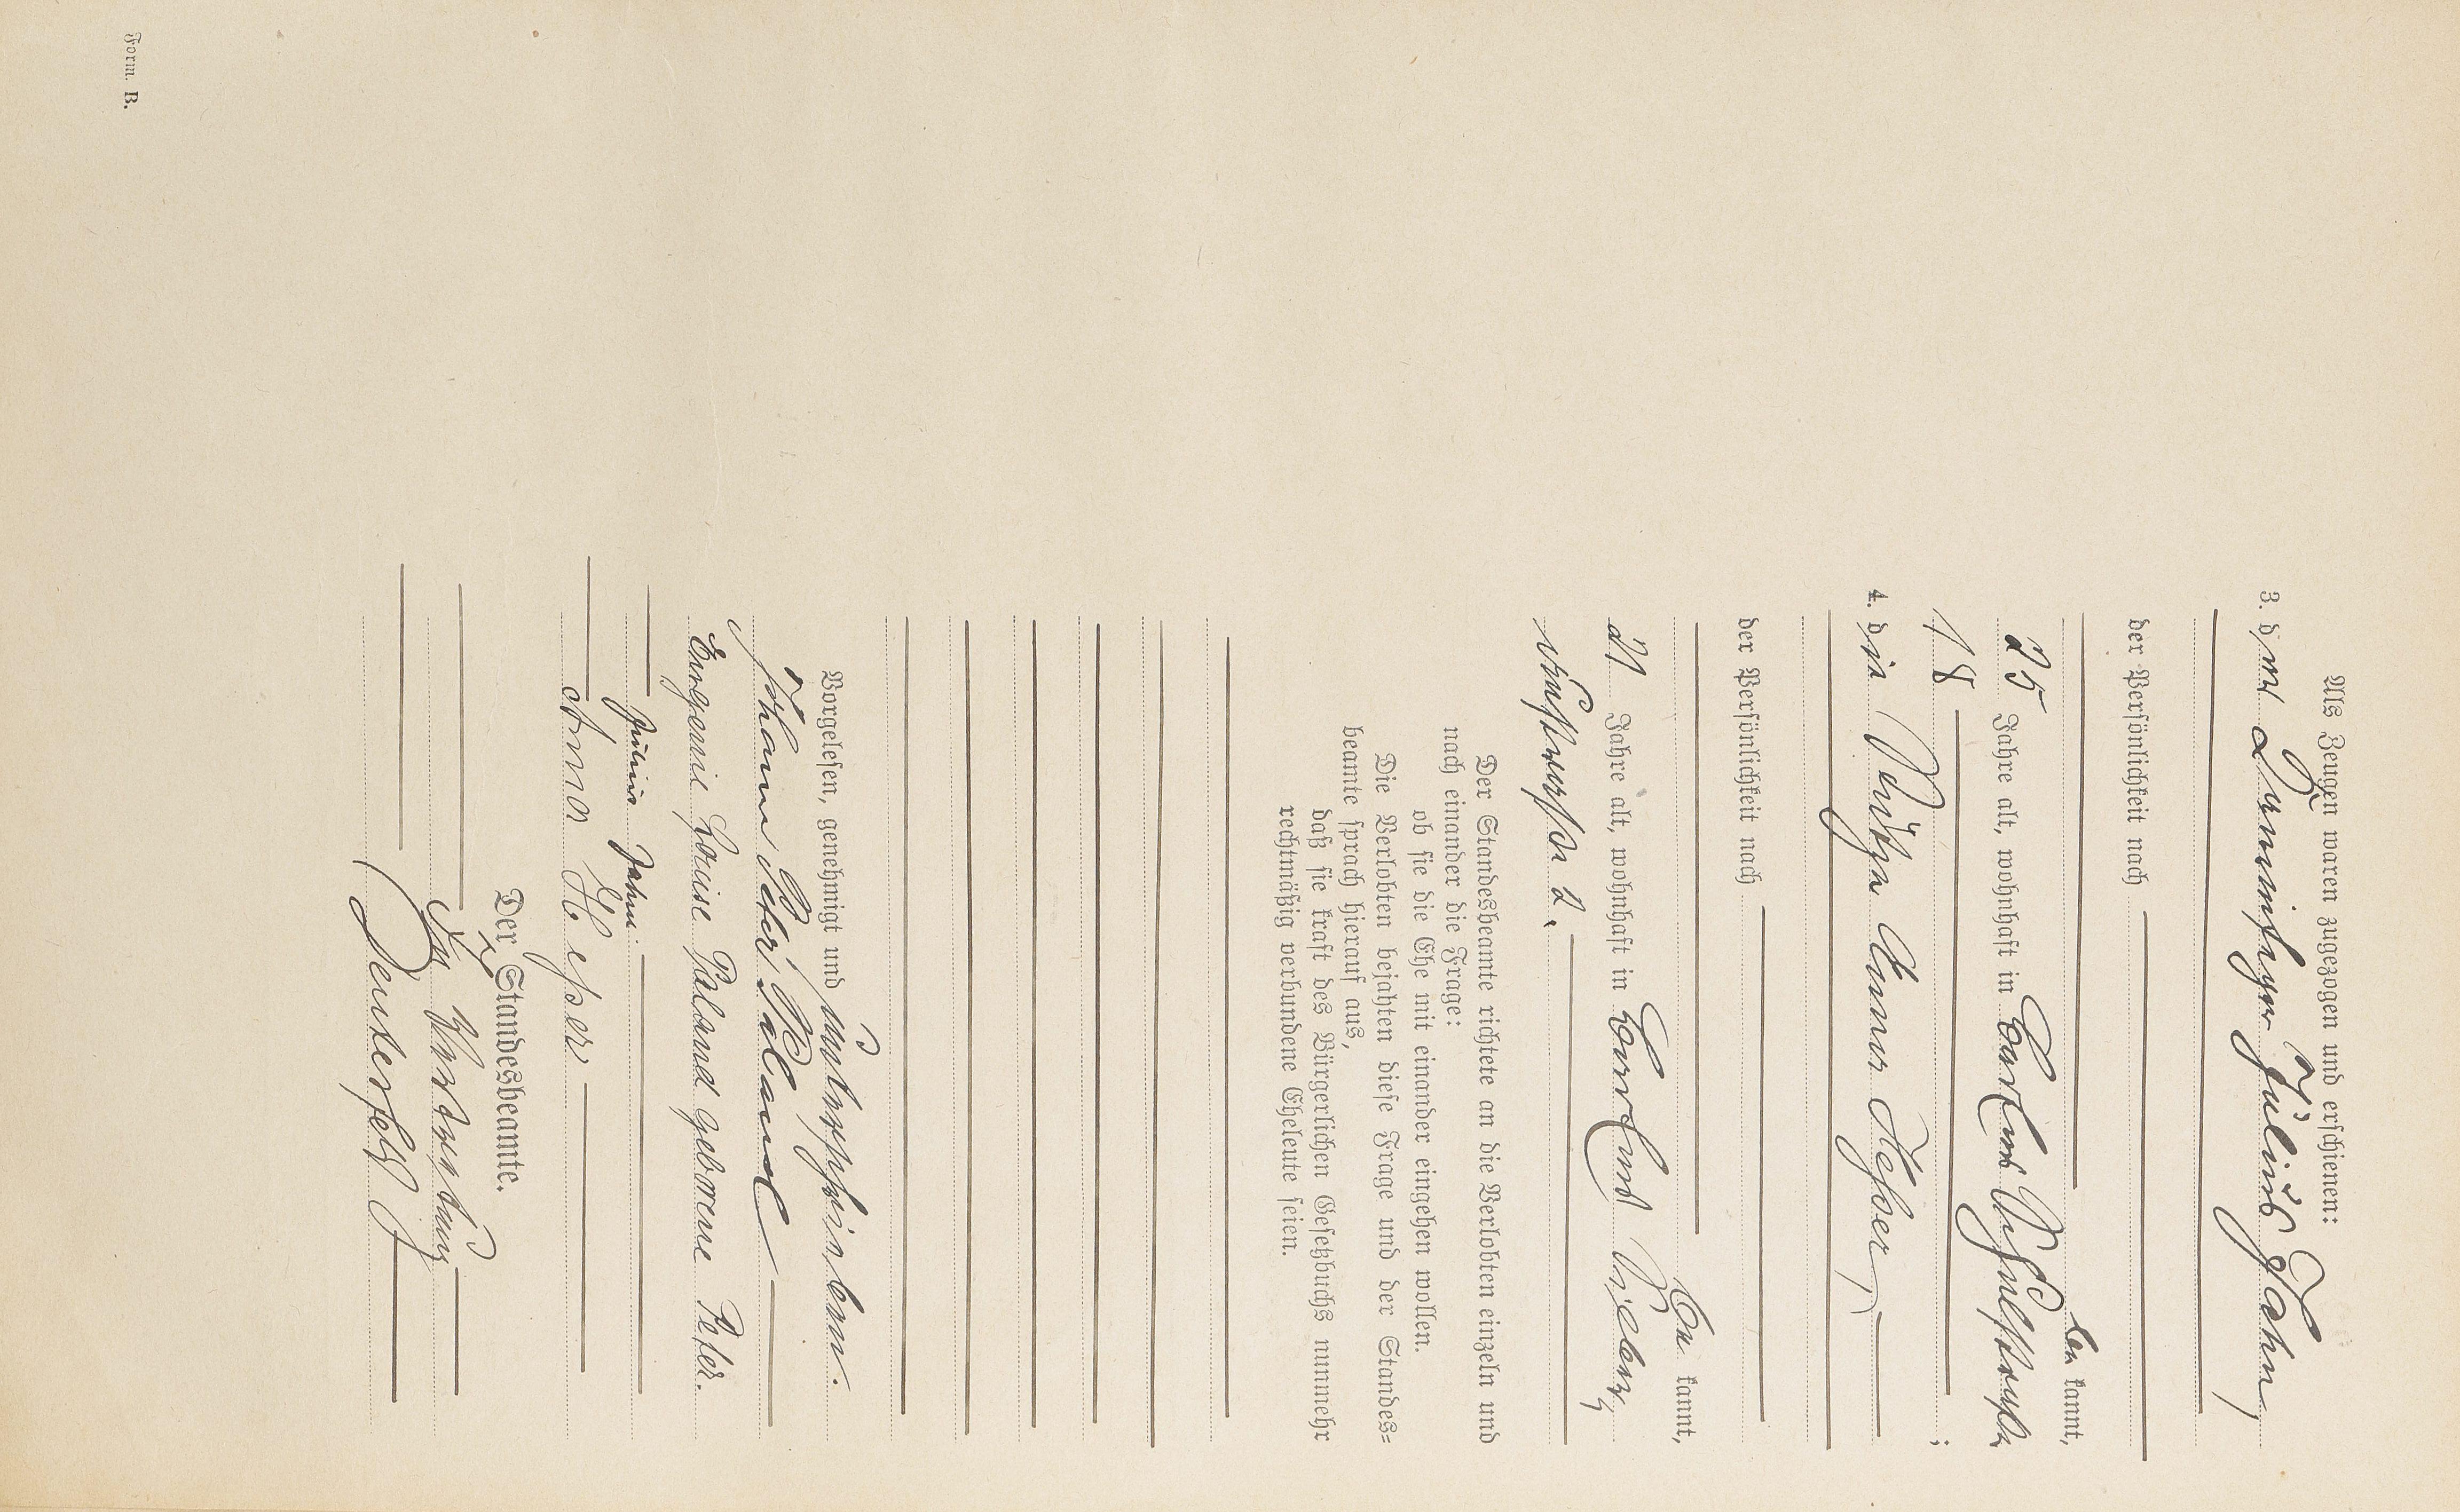 Als Zeugen waren zugezogen und erschienen:
3. der Julius Jahn,
der Persönlichkeit nach
be kannt,
25 Jahre alt, wohnhaft in
18 ;
4. die Anna Hesper,
der Persönlichkeit nach
be kannt,
21 Jahre alt, wohnhaft in
2.
Der Standesbeamte richtete an die Verlobten einzeln und
nach einander die Frage:
ob sie die Ehe mit einander eingehen wollen.
Die Verlobten bejahten diese Frage und der Standes=
beamte sprach hierauf aus,
daß sie kraft des Bürgerlichen Gesetzbuchs nunmehr
rechtmäßig verbundene Eheleute seien.
Vorgelesen, genehmigt und unterschrieben.
Johann Peter Paland
Eugenie Louise Paland geborene Peter.
Julius Jahn.
Anna Hesper
Der Standesbeamte.
In Vertretung
Form. B.